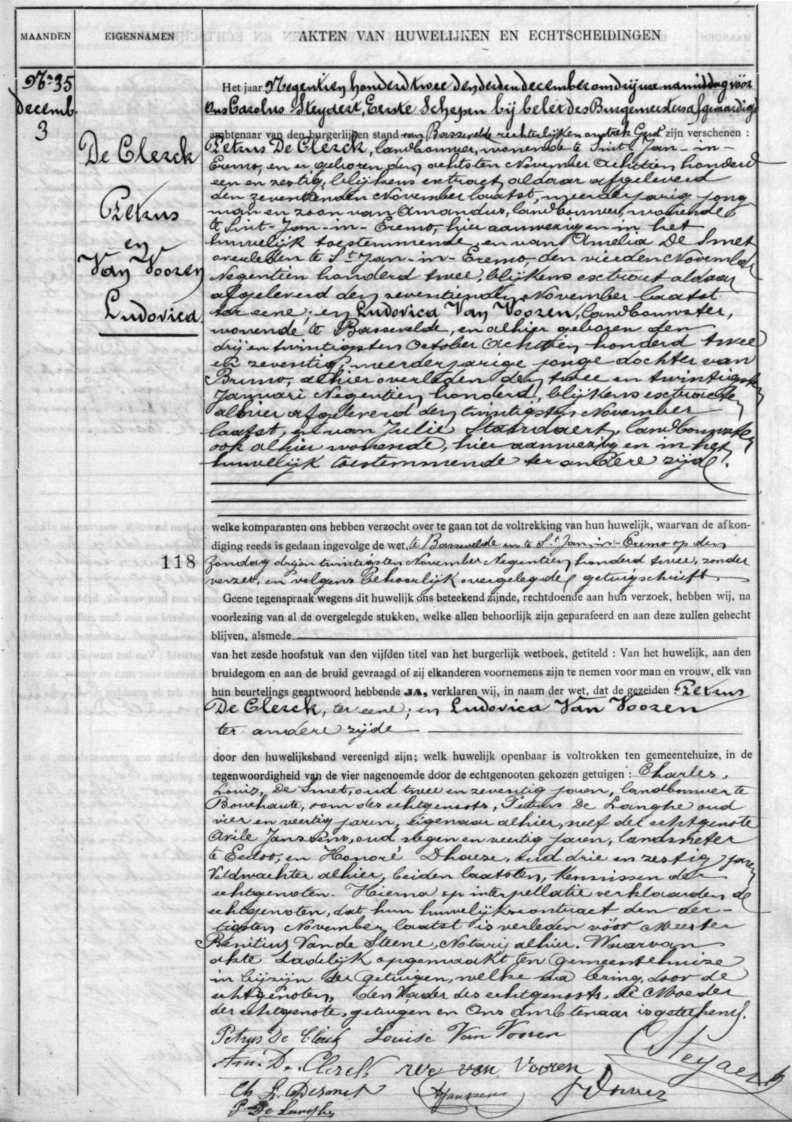 MAANDEN
EIGENNAMEN
AKTEN VAN HUWELIJKEN EN ECHTSCHEIDINGEN
No 35
decemb.
3
De Clerck
Petrus
en
Van Vooren
Ludovica
118
Het jaar Negentien honderd twee den derden december om drij ure namiddag vóór
Ons Carolus Steyaert, Eerste Schepen bij belet des Burgemeesters afgevaardigd
ambtenaar van den burgerlijken stand van Bassevelde zijn verschenen :
Petrus De Clerck, landbouwer, wonende te Sint-Jan-in-
Eremo, en er geboren den achtsten November achttien honderd
een en zestig, blijkens extract aldaar afgeleverd
den zeventienden November laatst, meerderjarig jong
man en zoon van Amandus, landbouwer, wonende
te Sint-Jan-in-Eremo, hier aanwezig en in het
huwelijk toestemmende, en van Amelia De Smet
overleden te St Jan-in-Eremo, den vierden November
Negentien honderd twee, blijkens extract aldaar
afgeleverd den zeventienden November laatst
ter eene; en Ludovica Van Vooren, landbouwster,
wonende te Bassevelde, en alhier geboren den
drij en twintigsten October achttien honderd twee
en zeventig, meerderjarige jonge dochter van
Bruno, alhier overleden den twee en twintigsten
Januari Negentien honderd, blijkens extract
alhier afgeleverd den twintigsten November
laatst, en van Julie Standaert, landbouwster
ook alhier wonende, hier aanwezig en in het
huwelijk toestemmende ter andere zijde.
welke komparanten ons hebben verzocht over te gaan tot de voltrekking van hun huwelijk, waarvan de afkon-
diging reeds is gedaan ingevolge de wet, te Bassevelde en te St Jan-in-Eremo op den
zondag drij en twintigsten November Negentien honderd twee, zonder
verzet, en volgens behoorlijk overgelegde getuigschrift.
Geene tegenspraak wegens dit huwelijk ons beteekend zijnde, rechtdoende aan hun verzoek, hebben wij, na
voorlezing van al de overgelegde stukken, welke allen behoorlijk zijn geparafeerd en aan deze zullen gehecht
blijven, alsmede
van het zesde hoofstuk van den vijfden titel van het burgerlijk wetboek, getiteld : Van het huwelijk, aan den
bruidegom en aan de bruid gevraagd of zij elkanderen voornemens zijn te nemen voor man en vrouw, elk van
hun beurtelings geantwoord hebbende JA, verklaren wij, in naam der wet, dat de gezeiden Petrus
De Clerck, ter eene; en Ludovica Van Vooren
ter andere zijde
door den huwelijksband vereenigd zijn; welk huwelijk openbaar is voltrokken ten gemeentehuize, in de
tegenwoordigheid van de vier nagenoemde door de echtgenooten gekozen getuigen : Charles
Louis De Smet, oud twee en zeventig jaren, landbouwer te
Bouchaute, oom des echtgenoots, Petrus De Langhe oud
vier en veertig jaren, eigenaar alhier, neef del echtgenote
Avile Janssens, oud negen en veertig jaren, landmeter
te Eecloo, en Honoré Dhaeze, oud drie en zestig jaren
Veldwachter alhier, beiden laatsten, kennissen der
echtgenoten. Hierna op interpellatie verklaarden de
echtgenoten, dat hun huwelijkscontract den der-
tigsten November laatst is verleden vóór Meester
Benitius Van de Steene, Notaris alhier. Waarvan
akte dadelijk opgemaakt ten gemeentehuize
in bijzijn der getuigen, welke na lezing, door de
echtgenoten, den Vader des echtgenoots, de Moeder
der echtgenote, getuigen en Ons Ambtenaar is geteekend.
Petrus De Clerck Louise Van Vooren
Am. De Clerck wve van vooren
Steyaert
Ch. L. Desmet Janssens
P. De Langhe